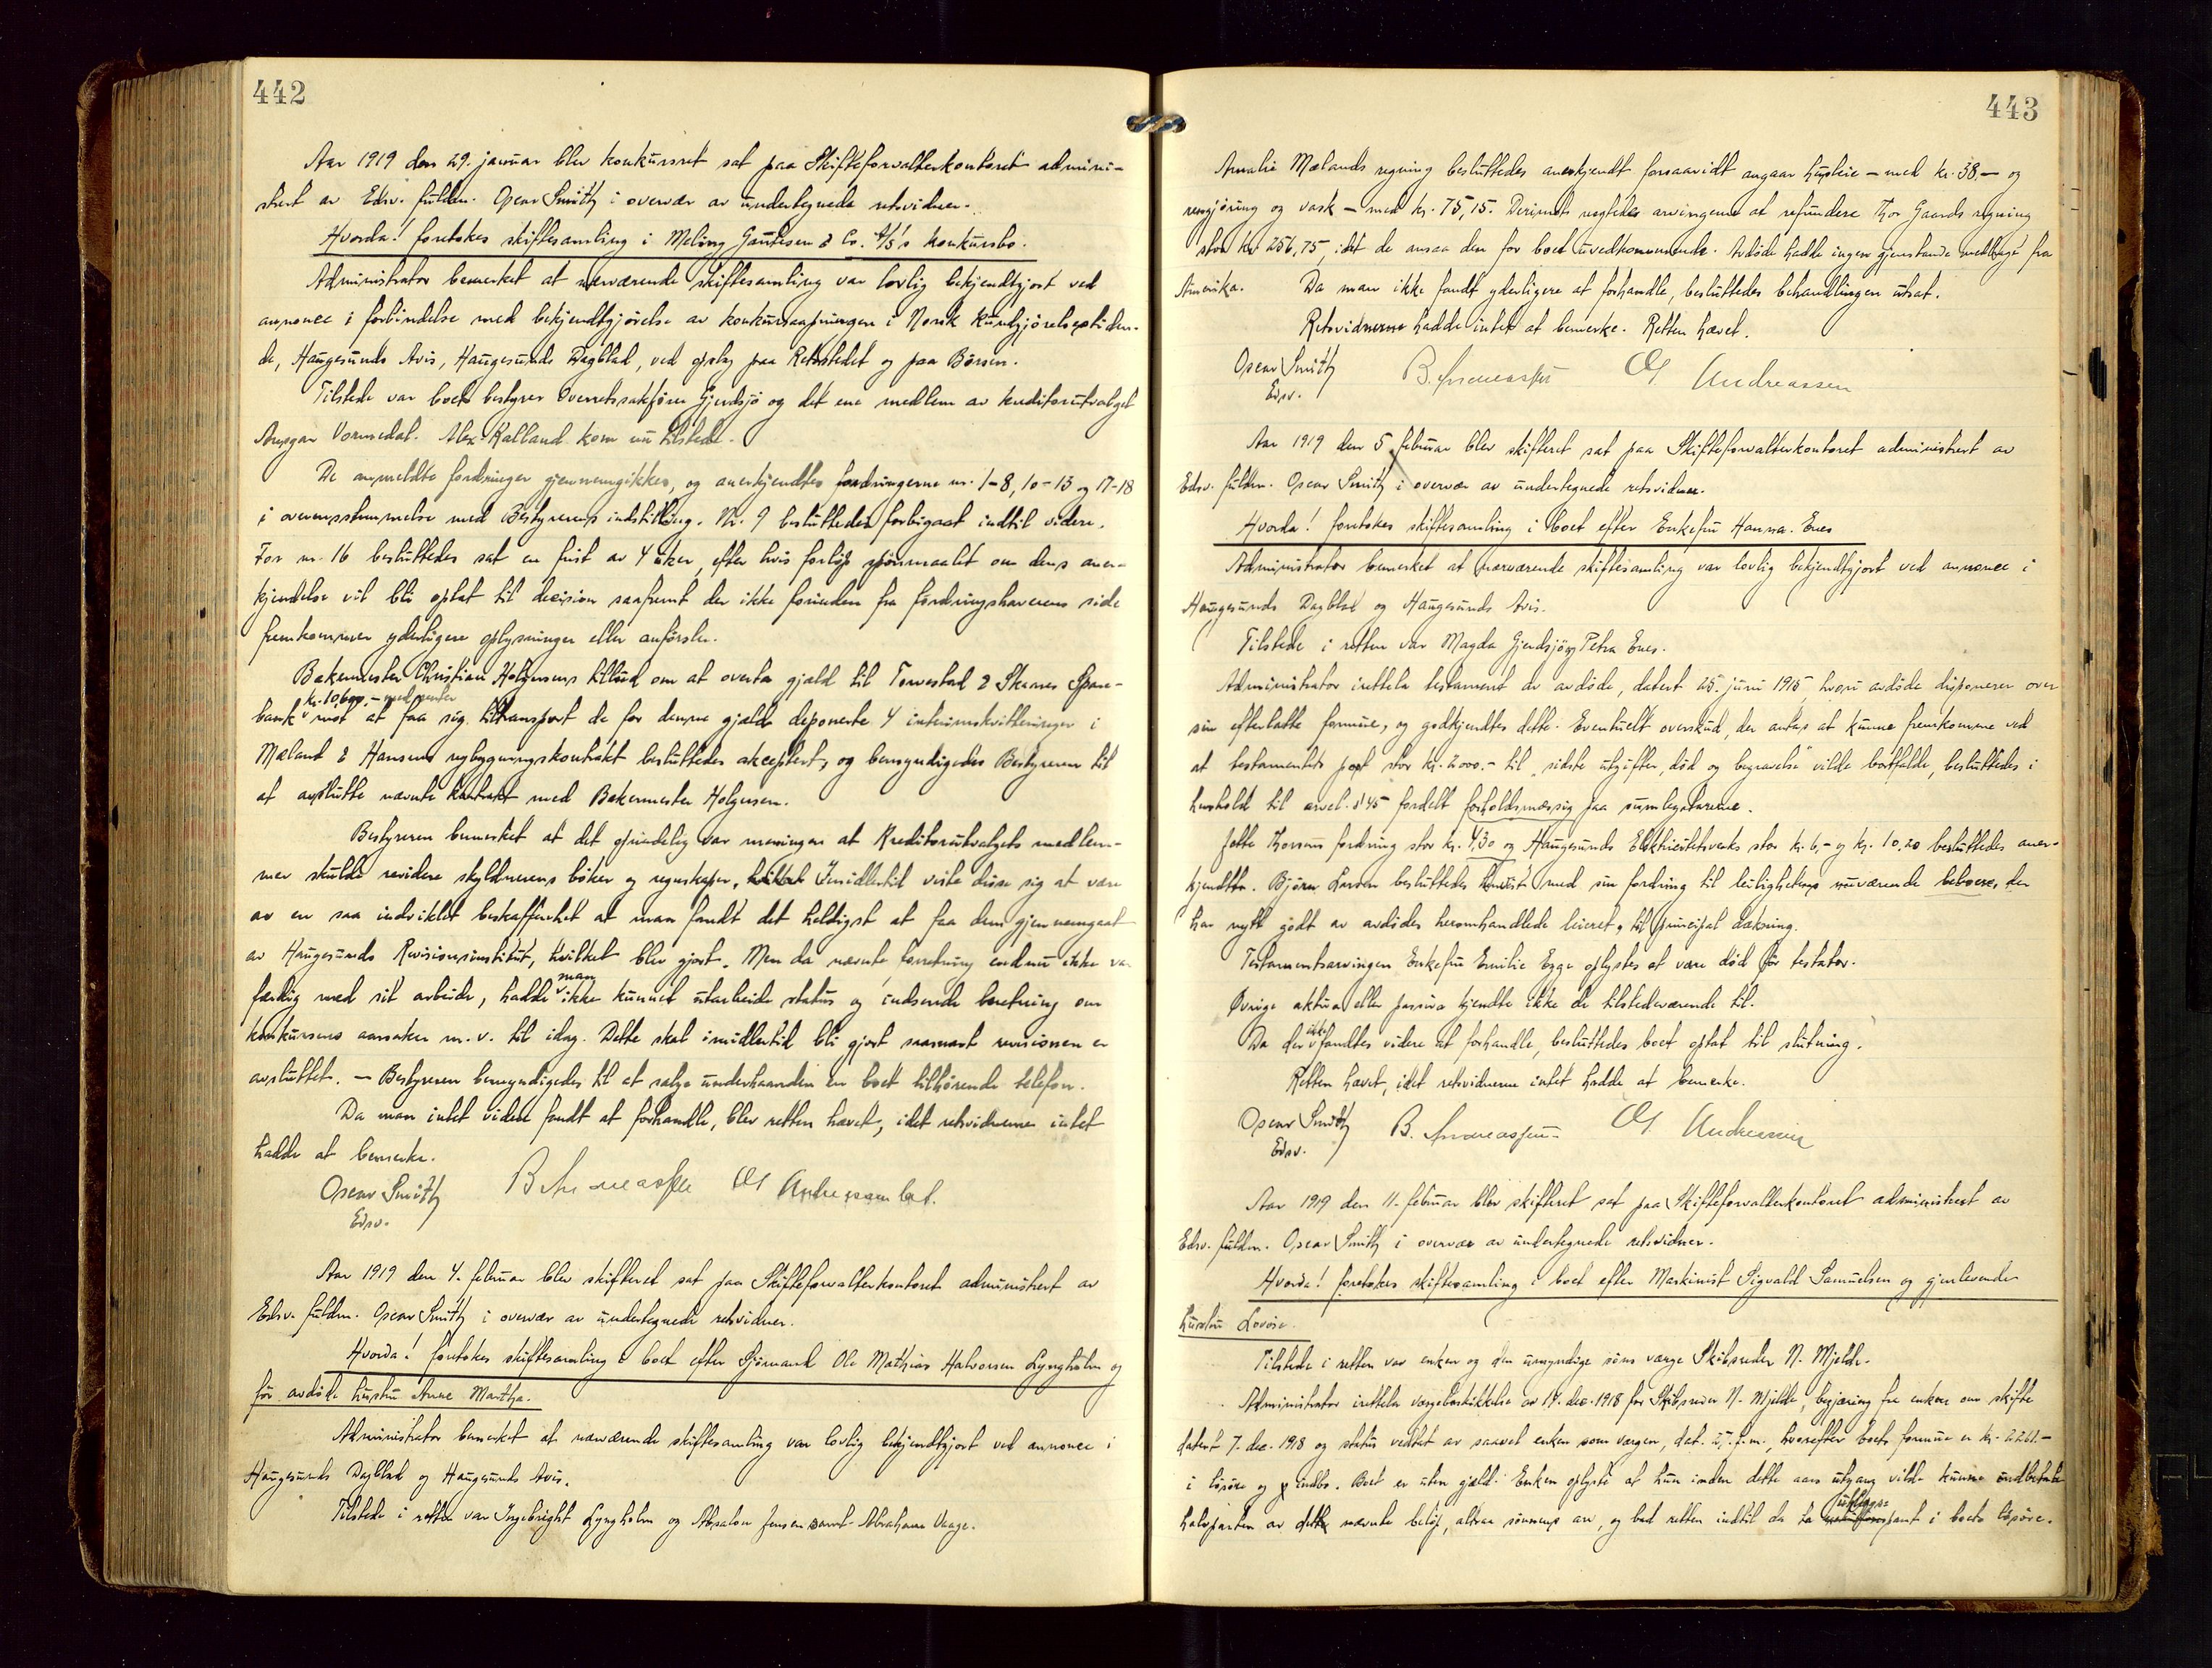 442
Aar 1919 den 29. januar blev konkursret sat paa Skifteforvalterkontoret admini-
strert av Edsv. fuldm. Oscar Smith i overvær av undertegnede retsvidner.
Hvorda! foretokes skiftesamling i Meling Gautesen & Co. A/S's konkursbo.
Administrator bemerket at nærværende skiftesamling var lovlig bekjendtgjort ved
annonce i forbindelse med bekjendtgjørelse av konkursaapningen i Norsk Kundgjørelsestiden-
de, Haugesunds Avis, Haugesunds Dagblad, ved opslag paa Retsstedet og paa Børsen.
Tilstede var boets bestyrer Overretssakfører Gjerdsjø og det ene medlem av kreditorutvalget
Ansgar Vormedal. Alex Kalland kom nu tilstede.
De anmeldte fordringer gjennemgikkes, og anerkjendtes fordringerne nr. 1-8, 10-15 og 17-18
i overensstemmelse med Bestyrerens indstilling. Nr. 9 besluttedes forbigaat indtil videre.
For nr. 16 besluttedes sat en frist av 4 uker, efter hvis forløp spørsmaalet om dens aner-
kjendelse vil bli optat til decision saafremt der ikke forinden fra fordringshaverens side
fremkommer yderligere oplysninger eller anførsler.
Bakermester Christian Holgersens tilbud om at overta gjæld til Torvestad & Skaares Spare-
kr. 10.600,- med renter
bank mot at faa sig tiltransport de for denne gjæld deponerte 4 interimskvitteringer i
Mæland & Hansens nybygningskontrakt besluttedes akceptert, og bemyndigedes Bestyreren til
at avslutte nævnte kontrakt med Bakermester Holgersen.
Bestyreren bemerket at det oprindelig var meningen at Kreditorutvalgets medlem-
mer skulde revidere skyldnerens bøker og regnskaper. Imidlertid viste disse sig at være
av en saa indviklet beskaffenhet at man fandt det heldigst at faa dem gjennemgaat
av Haugesunds Revisionsinstitut, hvilket blev gjort. Men da nævnte forretning endnu ikke va
man
færdig med sit arbeide, hadde ikke kunnet utarbeide status og indsende beretning om
konkursens aarsaker m.v. til idag. Dette skal imidlertid bli gjort saasnart revisionen er
avsluttet. - Bestyreren bemyndigedes til at sælge underhaanden en boet tilhørende telefon.
Da man intet videre fandt at forhandle, blev retten hævet, idet retsvidnerne intet
hadde at bemerke.
Oscar Smith B. Andreassen Andreassen
Edsv.
Aar 1919 den 4. februar blev skifteret sat paa Skifteforvalterkontoret administrert av
Edsv. fuldm. Oscar Smith i overvær av undertegnede retsvidner.
Hvorda! foretokes skiftesamling i boet efter Sjømand Ole Mathias Halvorsen Lyngholm og
før avdøde hustru Anne Martha.
Administrator bemerket at nærværende skiftesamling var lovlig bekjendtgjort ved annonce i
Haugesunds Dagblad og Haugesunds Avis.
Tilstede i retten var Ingebright Lyngholm og Absalon Jensen samt Abraham Vaage.
443
Amalie Mælands regning besluttedes anerkjendt forsaavidt angaar husleie - med kr. 38,- og
rengjøring og vask - med kr. 75,15. Derimot negtedes arvingerne at refundere Thor Gaards regning
stor kr. 256,75, idet de ansaa den for boet uvedkommende. Avdøde hadde ingen gjenstande medbragt fra
Amerika. Da man ikke fandt yderligere at forhandle, besluttedes behandlingen utsat.
Retsvidnerne hadde intet at bemerke. Retten hævet.
Oscar Smith B. Andreassen Andreassen
Edsv.
Aar 1919 den 5. februar blev skifteret sat paa Skifteforvalterkontoret administrert av
Edsv. fuldm. Oscar Smith i overvær av undertegnede retsvidner.
Hvorda! foretokes skiftesamling i boet efter Enkefru Hanna Enes
Administrator bemerket at nærværende skiftesamling var lovlig bekjendtgjort ved annonce i
Haugesunds Dagblad og Haugesunds Avis.
Tilstede i retten var Magda Gjerdsjø og Petra Enes.
Administrator irettela testament av avdøde, datert 25. juni 1915 hvori avdøde disponerer over
sin efterlatte formue, og godkjendtes dette. Eventuelt overskud, der antas at kunne fremkomme ved
at testamentets post stor kr. 2000.- til "sidste utgifter, død og begravelse" vilde bortfalde, besluttedes i
henhold til arvel. § 45 fordelt forholdsmæssig paa sumlegatarerne.
Jette Thorsens fordring stor kr. 4,30 og Haugesunds Elektricitetsverks stor kr. 6,- og kr. 10,20 besluttedes aner-
kjendte. Bjørn Larsen besluttedes henvist med sin fordring til leilighetens nuværende beboere, der
har nytt godt av avdødes heromhandlede leieret, til principal dækning.
Testamentsarvingen Enkefru Emilie Egge oplystes at være død før testator.
Øvrige aktiva eller passiva kjendte ikke de tilstedeværende til.
ikke
Da der fandtes videre at forhandle, besluttedes boet optat til slutning.
Retten hævet, idet retsvidnerne intet hadde at bemerke.
Oscar Smith B. Andreassen Andreassen
Edsv.
Aar 1919 den 11. februar blev skifteret sat paa Skifteforvalterkontoret administrert av
Edsv. fuldm. Oscar Smith i overvær av undertegnede retsvidner.
Hvorda! foretokes skiftesamling i boet efter Maskinist Sigvald Samuelsen og gjenlevende
hustru Lovise.
Tilstede i retten var enken og den umyndige søns værge Skibsreder N. Mjelde.
Administrator irettela værgebeskikkelse av 14. dec. 1918 for Skibsreder N. Mjelde, begjæring fra enken om skifte
datert 7. dec. 1918 og status vedtat av saavel enken som værgen, dat. hvorefter boets formue er kr. 2261.-
i løsøre og indbo. Boet er uten gjæld. Enken oplyste at hun inden dette aars utgang vilde kunne indbetale
halvparten av nævnte beløp, altsaa sønnens arv, og bad retten indtil da ta pant i boets løsøre.